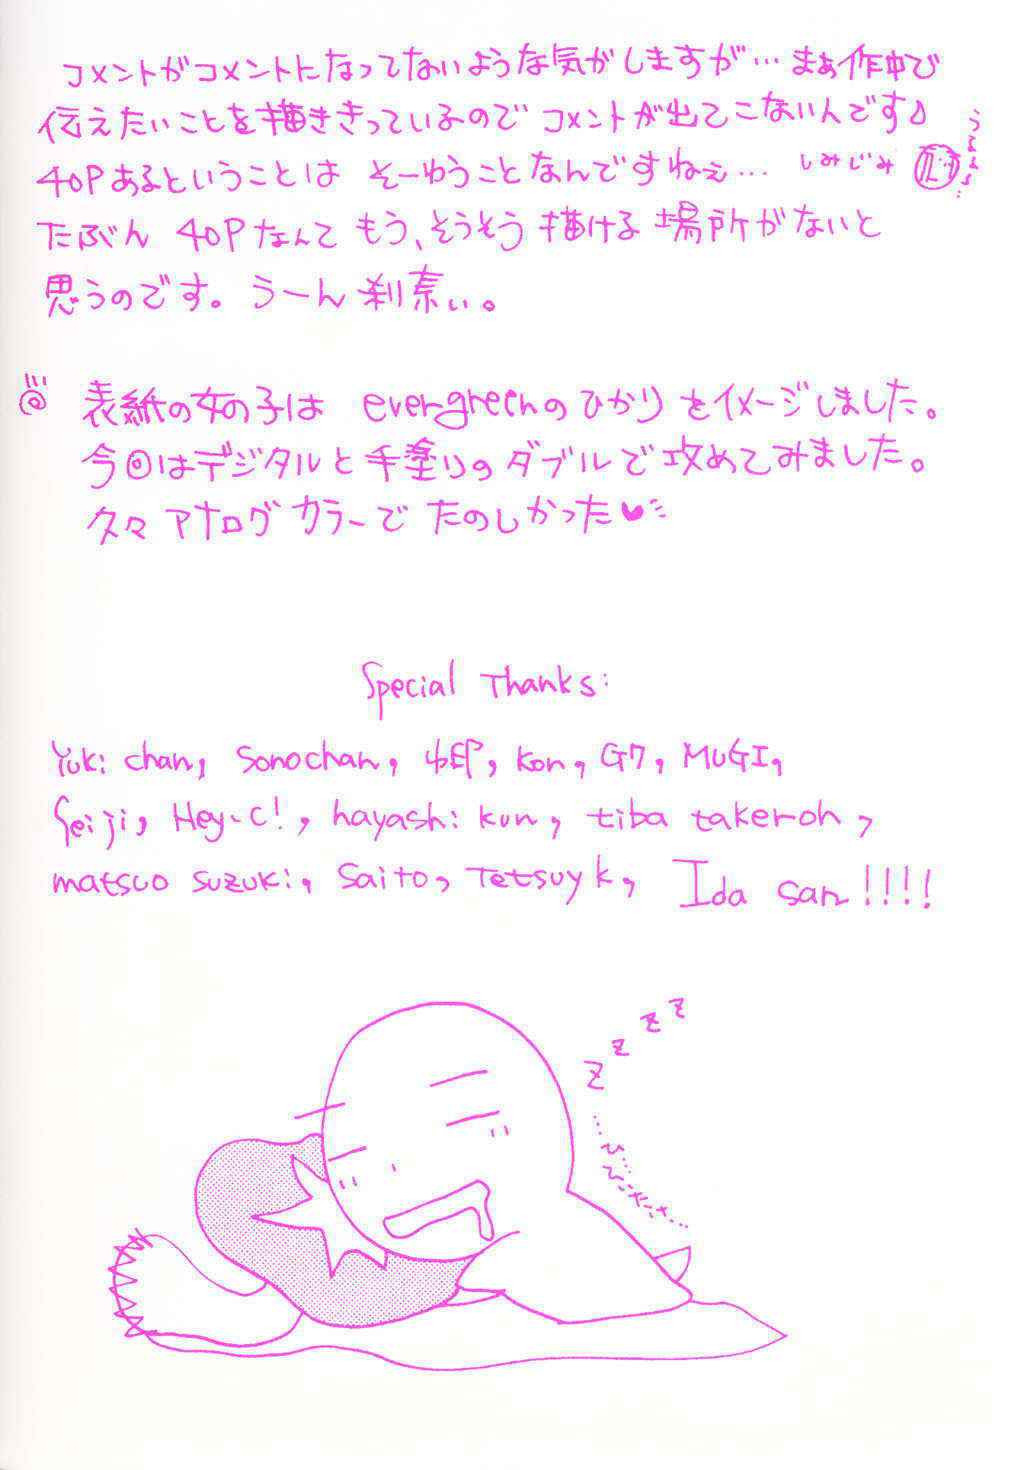 コメントがコメントになってないような気がしますが…まぁ作中で
伝えたいことを描ききっているのでコメントが出てこないんです♪
40Pあるということは そーゆうことなんですねぇ… しみじみ
たぶん 40Pなんて もう、そうそう描ける場所がないと
思うのです。うーん 刹素い。
表紙の女の子は evergreenのひかりをイメージしました。
今回はデジタルと手塗りのダブルで攻めてみました。
久々アナログカラーでたのしかった♥
Special Thanks:
Yuki chan, Sonochan, 中邸, Kon, G7, MUGI,
Seiji, Hey-C!, hayashi kun, tiba takeroh,
matsuo suzuki, Saito, Tetsuyk, Ida san!!!!
z z z z